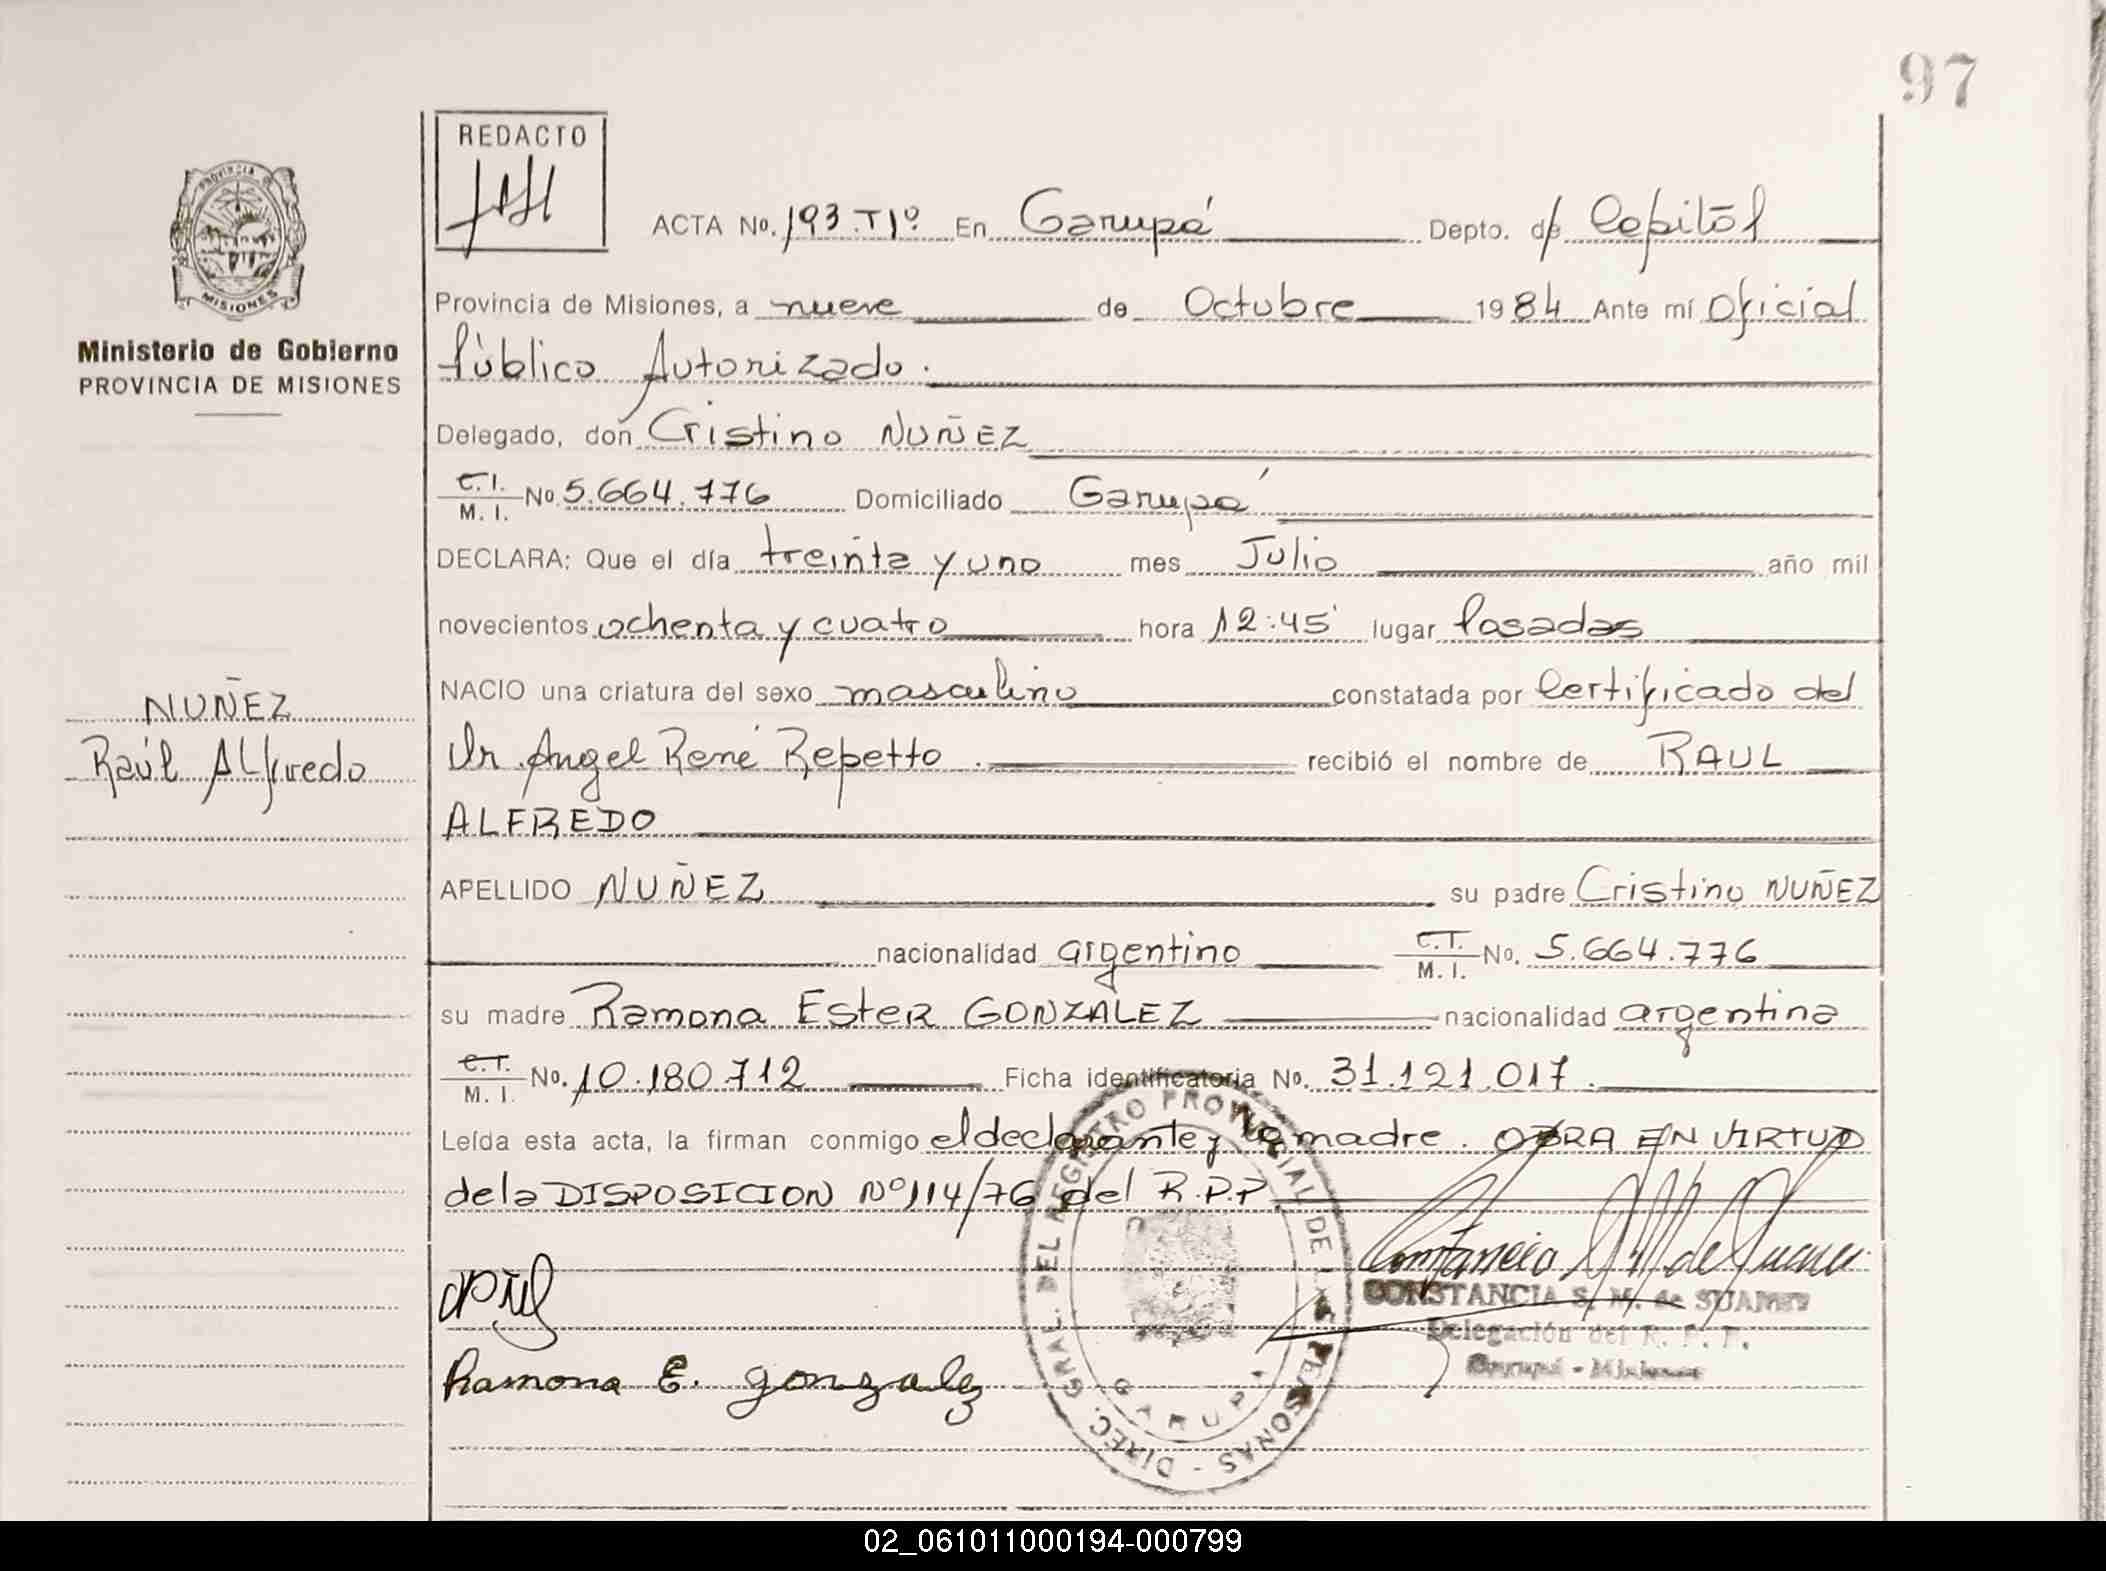 97
REDACTO
PROVINCIA DE
MISIONES
Ministerio de Gobierno
PROVINCIA DE MISIONES
ACTA No. 193.T1º En Garupá Depto. de Capital
Provincia de Misiones, a nueve de Octubre 1984 Ante mí Oficial
Público Autorizado.
Delegado, don Cristino NUÑEZ
C.I. M. I. No 5.664.776 Domiciliado Garupá
DECLARA: Que el día treinta y uno mes Julio año mil
novecientos ochenta y cuatro hora 12:45 lugar Posadas
NACIO una criatura del sexo masculino constatada por Certificado del
Dr. Angel René Repetto. recibió el nombre de RAUL
ALFREDO
APELLIDO NUÑEZ su padre Cristino NUÑEZ
nacionalidad argentino C.I. M. I. No. 5.664.776
su madre Ramona Ester GONZALEZ nacionalidad argentina
C.I. M. I. No. 10.180.712 Ficha identificatoria No. 31.121.017.
Leída esta acta, la firman conmigo el declarante y la madre. OBRA EN VIRTUD
de la DISPOSICION Nº 114/76 del R.P.P.
NUÑEZ
Raúl Alfredo
Ramona E. gonzalez
DIREC. GRAL. DEL REGISTRO PROVINCIAL DE LAS PERSONAS -
GARUPA
CONSTANCIA S. M. de SUAREZ
Delegación del R. P. P.
Garupá - Misiones
02_061011000194-000799